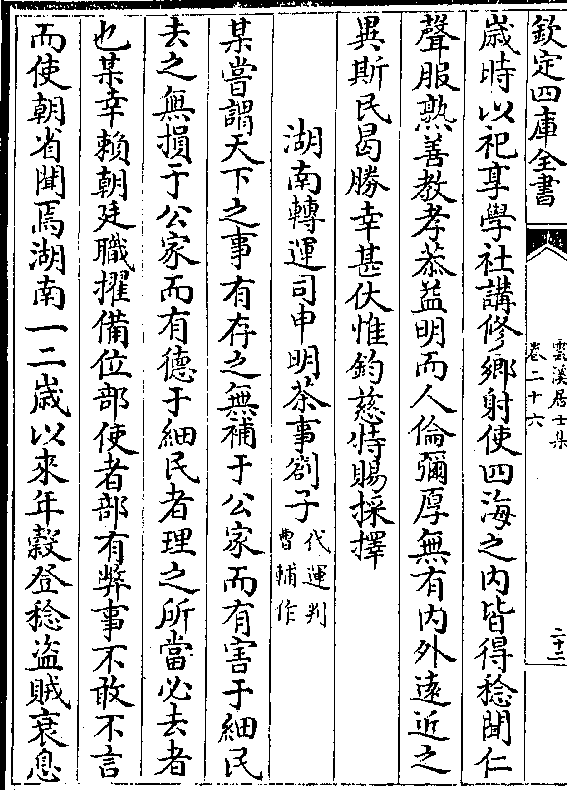 欽定四庫全書
雲溪居士集
卷二十六
二十二
歲時以祀享學社講修鄉射使四海之内皆得稔聞仁
聲服熟善教孝恭益明而人倫彌厚無有内外遠近之
異斯民曷勝幸甚伏惟鈞慈恃賜採擇
湖南轉運司申明茶事劄子代運判曹輔作
某嘗謂天下之事有存之無補于公家而有害于細民
去之無損于公家而有德于細民者理之所當必去者
也某幸賴朝廷職擢備位部使者部有弊事不敢不言
而使朝省聞焉湖南一二歲以來年穀登稔盜賊衰息